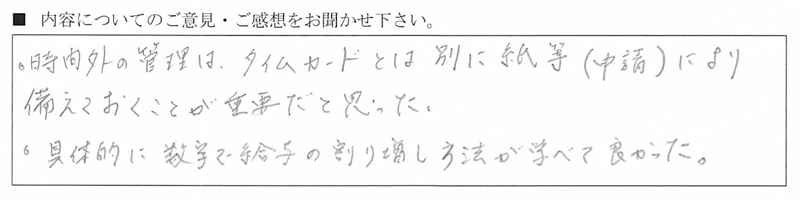 ■ 内容についてのご意見・ご感想をお聞かせ下さい。
。時間外の管理は、タイムカードとは別に紙等(申請)により
備えておくことが重要だと思った。
。具体的に数字で給与の割り増し方法が学べて良かった。